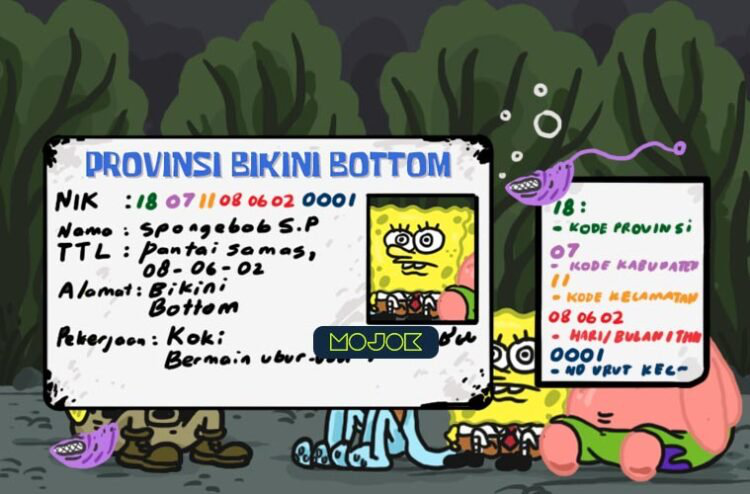 PROVINSI BIKINI BOTTOM
NIK : 18 07 11 08 06 02 0001
Nama : Spongebob S.P
TTL : Pantai Samas,
08-06-02
Alamat : Bikini
Bottom
Pekerjaan : Koki
Bermain ubur-ubur
MOJOK
18:
- KODE PROVINSI
07
- KODE KABUPATEN
11
- KODE KECAMATAN
08 06 02
- HARI/BULAN/THN
0001
- NO URUT KEC